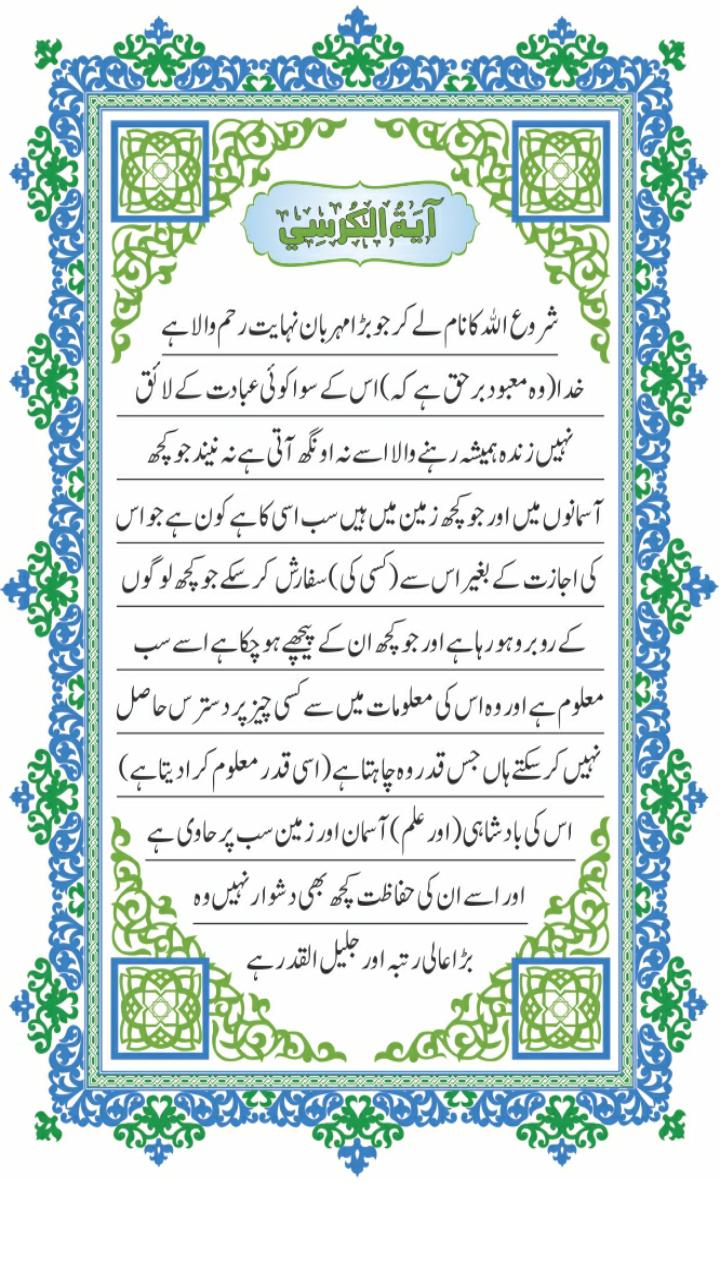 آيَةُ الكُرسِي
شروع اللہ کا نام لے کر جو بڑا مہربان نہایت رحم والا ہے
خدا (وہ معبود برحق ہے کہ) اس کے سوا کوئی عبادت کے لائق
نہیں زندہ ہمیشہ رہنے والا اسے نہ اونگھ آتی ہے نہ نیند جو کچھ
آسمانوں میں اور جو کچھ زمین میں ہیں سب اسی کا ہے کون ہے جو اس
کی اجازت کے بغیر اس سے (کسی کی) سفارش کر سکے جو کچھ لوگوں
کے روبرو ہو رہا ہے اور جو کچھ ان کے پیچھے ہو چکا ہے اسے سب
معلوم ہے اور وہ اس کی معلومات میں سے کسی چیز پر دسترس حاصل
نہیں کر سکتے ہاں جس قدر وہ چاہتا ہے (اسی قدر معلوم کرا دیتا ہے)
اس کی بادشاہی (اور علم) آسمان اور زمین سب پر حاوی ہے
اور اسے ان کی حفاظت کچھ بھی دشوار نہیں وہ
بڑا عالی رتبہ اور جلیل القدر ہے